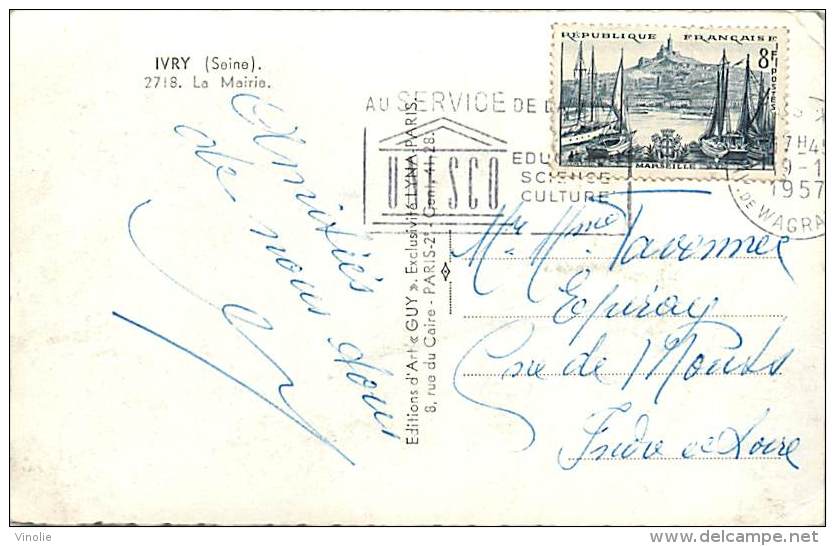 IVRY (Seine).
2718. La Mairie.
RÉPUBLIQUE FRANÇAISE
8F
POSTES
MARSEILLE
AU SERVICE DE
UNESCO
SCIENCE
CULTURE
17H45
1957
DE WAGRA
Editions d'Art « GUY ». Exclusivité LYNA-PARIS.
8, rue du Caire - PARIS-2e - Cent. 41-28.
Amitiés
de nous deux
Mr. Mme Tavernier
Epiray
Cne de Monts
Indre et Loire
Vinolie
delcampe.net